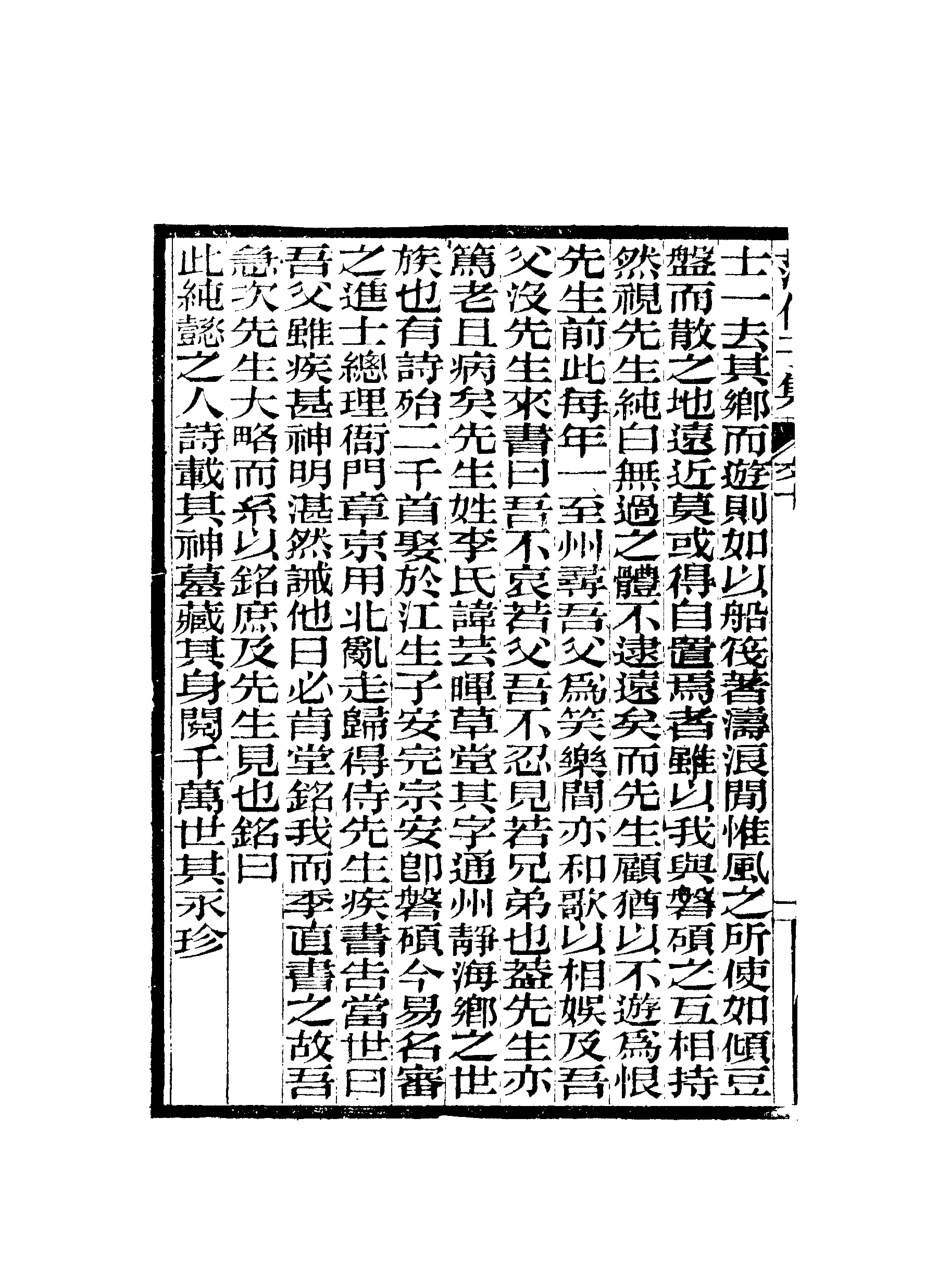 士一去其鄉而遊則如以船筏著濤浪間惟風之所使如傾豆
盤而散之地遠近莫或得自置焉者雖以我與磐碩之互相持
然視先生純白無過之體不逮遠矣而先生顧猶以不遊爲恨
先生前此每年一至州尋吾父爲笑樂間亦和歌以相娛及吾
父沒先生來書曰吾不哀若父吾不忍見若兄弟也葢先生亦
篤老且病矣先生姓李氏諱芸暉草堂其字通州靜海鄉之世
族也有詩殆二千首娶於江生子安完宗安卽磐碩今易名審
之進士總理衙門章京用北亂走歸得侍先生疾書告當世曰
吾父雖疾甚神明湛然誡他日必肯堂銘我而季直書之故吾
急次先生大略而系以銘庶及先生見也銘曰
此純懿之人詩載其神墓藏其身閱千萬世其永珍